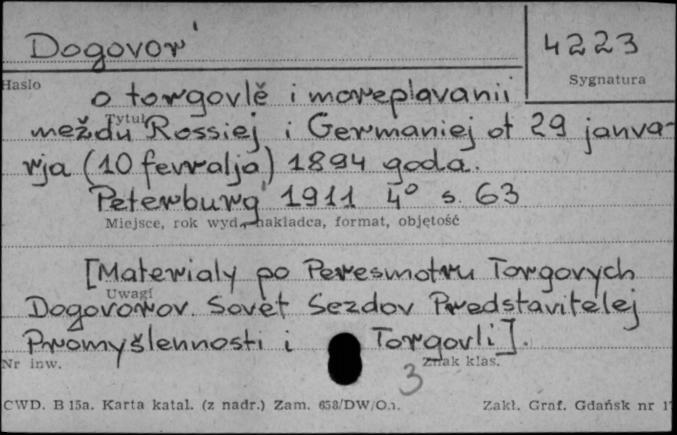 Dogovor' 4223
Hasło Sygnatura
o torgovlě i moreplavanii
Tytuł
meždu Rossiej i Germaniej ot 29 janva-
rja (10 fevralja) 1894 goda.
Peterburg' 1911 4° s. 63
Miejsce, rok wyd., nakładca, format, objętość
[Materialy po Peresmotru Torgovych
Uwagi
Dogovorov. Sovet Sezdov Predstavitelej
Promyšlennosti i Torgovli].
Nr inw. Znak klas.
3
CWD. B 15a. Karta katal. (z nadr.) Zam. 658/DW/O.1. Zakł. Graf. Gdańsk nr 1